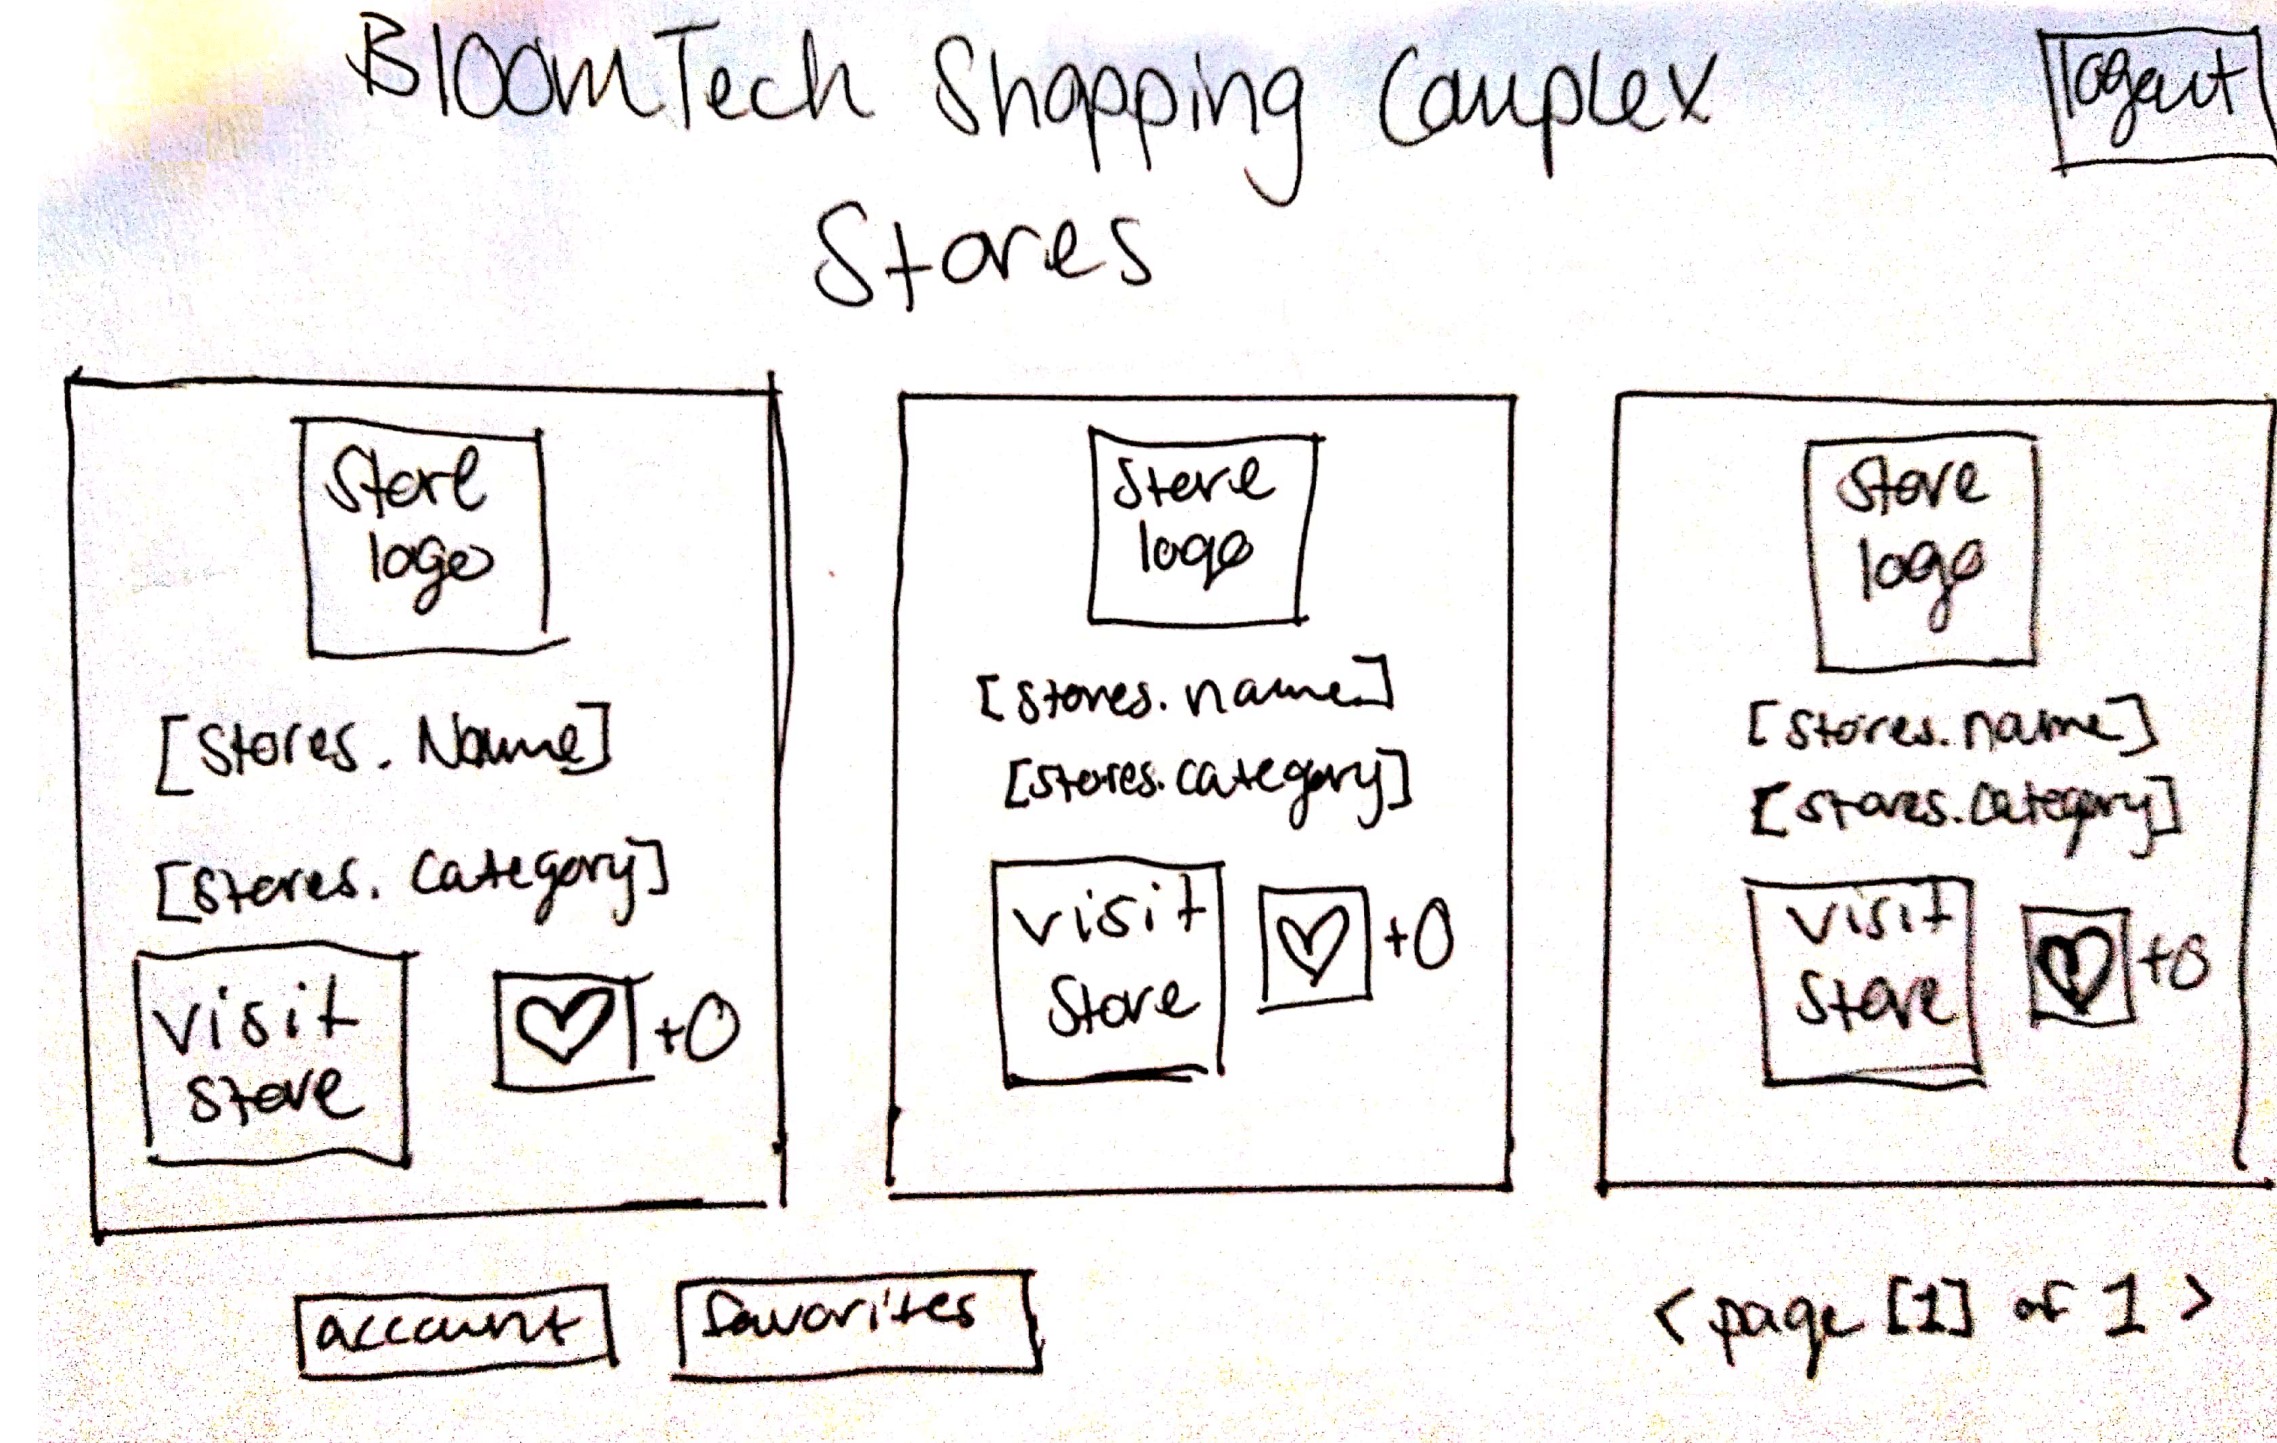 BloomTech Shopping Complex
logout
Stores
Store
logo
[Stores. Name]
[Stores. Category]
visit
store
+0
Store
logo
[stores. name]
[stores. category]
visit
Store
+0
Store
logo
[stores. name]
[stores. category]
visit
store
+0
account
favorites
< page [1] of 1 >